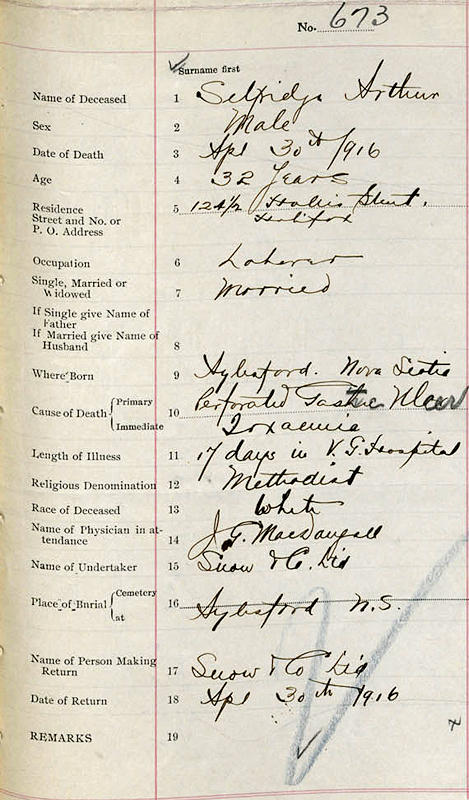 No. 673
Surname first
Name of Deceased 1 Selfridge Arthur
Sex 2 Male
Date of Death 3 Apl 30th 1916
Age 4 32 Years
Residence
Street and No. or 5 124½ Hollis Street,
P. O. Address Halifax
Occupation 6 Laborer
Single, Married or
Widowed 7 Married
If Single give Name of
Father
If Married give Name of
Husband 8
Where Born 9 Aylesford. Nova Scotia
Cause of Death { Primary 10 Perforated Gastric Ulcer
Immediate Toxaemia
Length of Illness 11 17 days in V. G. Hospital
Religious Denomination 12 Methodist
Race of Deceased 13 White
Name of Physician in at-
tendance 14 J. G. MacDougall
Name of Undertaker 15 Snow & Co. Ltd
Place of Burial { Cemetery 16
at Aylesford N.S.
Name of Person Making
Return 17 Snow & Co Ltd
Date of Return 18 Apl 30th 1916
REMARKS 19